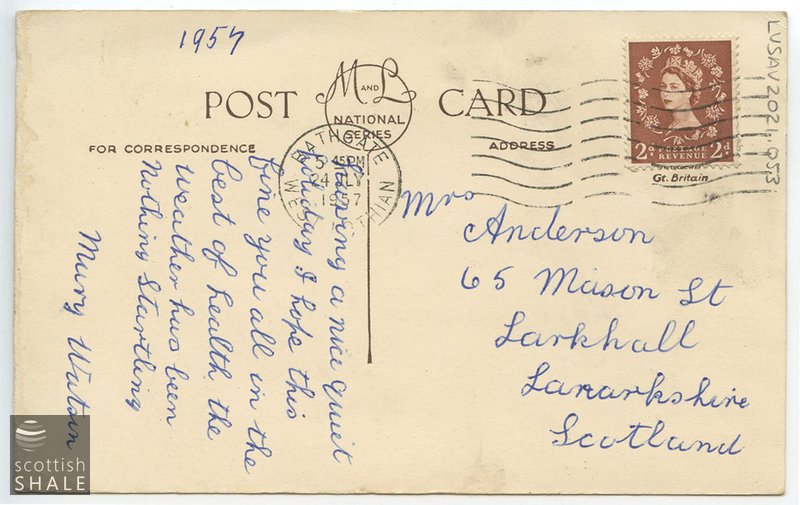 1957
M AND L
NATIONAL
SERIES
POST CARD
FOR CORRESPONDENCE
ADDRESS
BATHGATE
45PM
24
1957
WEST LOTHIAN
2d POSTAGE REVENUE 2d
Gt. Britain
LUSAV2021.053
Having a nice quiet
holiday I hope this
fine you all in the
best of health the
weather has been
Nothing Startling
Mary Watson
Mrs
Anderson
65 Mason St
Larkhall
Lanarkshire
Scotland
scottish
SHALE